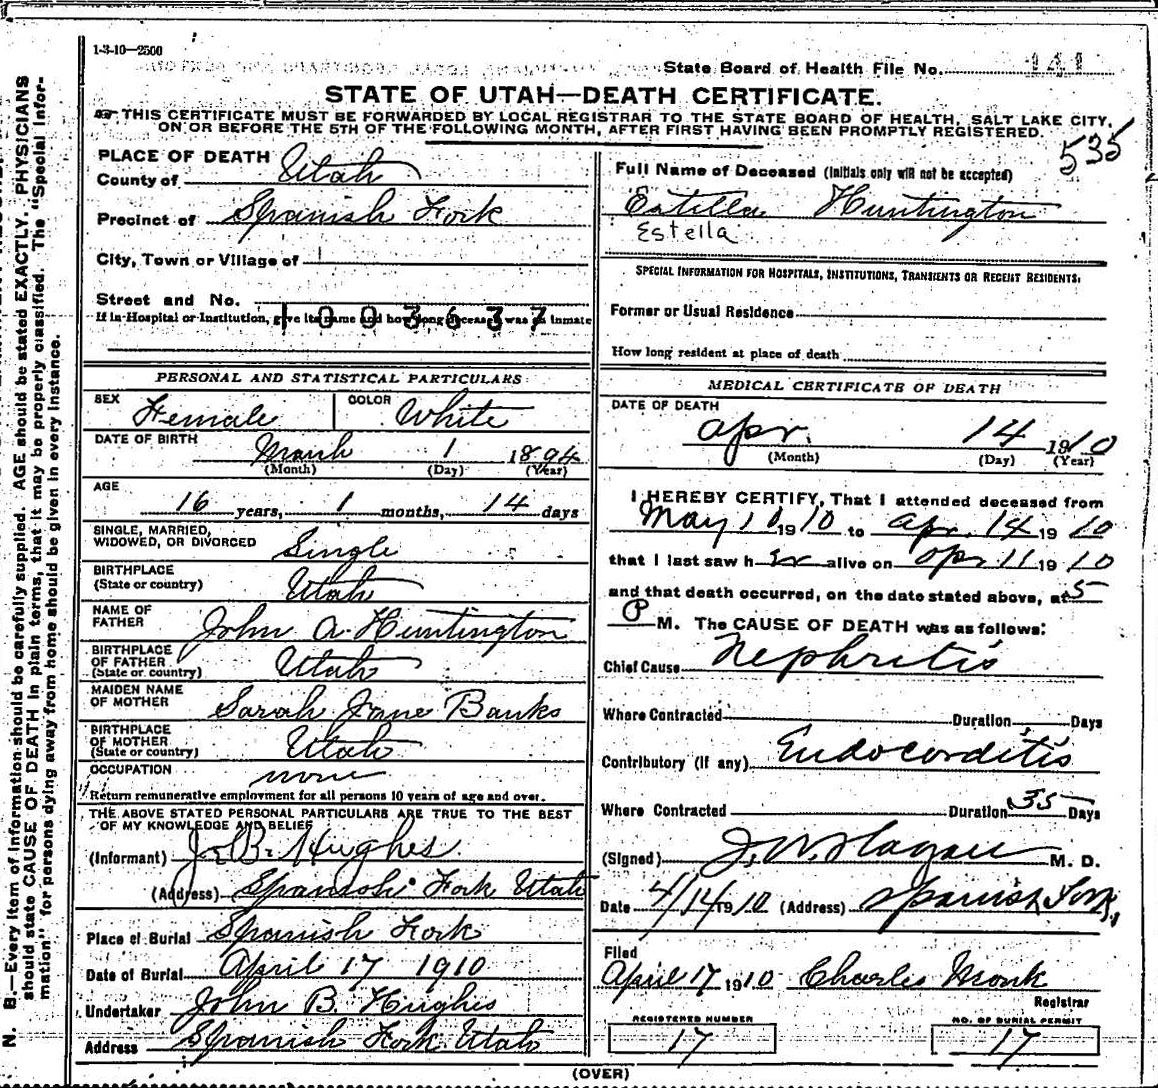 1-3-10—2500
State Board of Health File No. 141
STATE OF UTAH—DEATH CERTIFICATE.
THIS CERTIFICATE MUST BE FORWARDED BY LOCAL REGISTRAR TO THE STATE BOARD OF HEALTH, SALT LAKE CITY,
ON OR BEFORE THE 5TH OF THE FOLLOWING MONTH, AFTER FIRST HAVING BEEN PROMPTLY REGISTERED.
535
PLACE OF DEATH
County of Utah
Precinct of Spanish Fork
City, Town or Village of
Street and No.
If in Hospital or Institution, give its name and how long deceased was an inmate
1003637
Full Name of Deceased (Initials only will not be accepted)
Estella Huntington
Estella
SPECIAL INFORMATION FOR HOSPITALS, INSTITUTIONS, TRANSIENTS OR RECENT RESIDENTS:
Former or Usual Residence
How long resident at place of death
PERSONAL AND STATISTICAL PARTICULARS
SEX Female COLOR White
DATE OF BIRTH March 1 1894
(Month) (Day) (Year)
AGE
16 years, 1 months, 14 days
SINGLE, MARRIED,
WIDOWED, OR DIVORCED Single
BIRTHPLACE
(State or country) Utah
NAME OF
FATHER John A. Huntington
BIRTHPLACE
OF FATHER
(State or country) Utah
MAIDEN NAME
OF MOTHER Sarah Jane Banks
BIRTHPLACE
OF MOTHER
(State or country) Utah
OCCUPATION none
Return remunerative employment for all persons 10 years of age and over.
THE ABOVE STATED PERSONAL PARTICULARS ARE TRUE TO THE BEST
OF MY KNOWLEDGE AND BELIEF
(Informant) J. B. Hughes
(Address) Spanish Fork Utah
Place of Burial Spanish Fork
Date of Burial April 17 1910
Undertaker John B. Hughes
Address Spanish Fork Utah
MEDICAL CERTIFICATE OF DEATH
DATE OF DEATH
Apr. 14 1910
(Month) (Day) (Year)
I HEREBY CERTIFY, That I attended deceased from
May 10 1910 to Apr. 14 1910
that I last saw her alive on Apr 11 1910
and that death occurred, on the date stated above, at 5
P M. The CAUSE OF DEATH was as follows:
Chief Cause Nephritis
Where Contracted Duration Days
Contributory (if any) Endocorditis
Where Contracted Duration 35 Days
(Signed) J. W. Hagan M. D.
Date 4/14 1910 (Address) Spanish Fork,
Filed
April 17 1910 Charles Monk
Registrar
REGISTERED NUMBER
17
NO. OF BURIAL PERMIT
17
(OVER)
N. B.—Every item of information should be carefully supplied. AGE should be stated EXACTLY. PHYSICIANS
should state CAUSE OF DEATH in plain terms, that it may be properly classified. The "Special Infor-
mation" for persons dying away from home should be given in every instance.